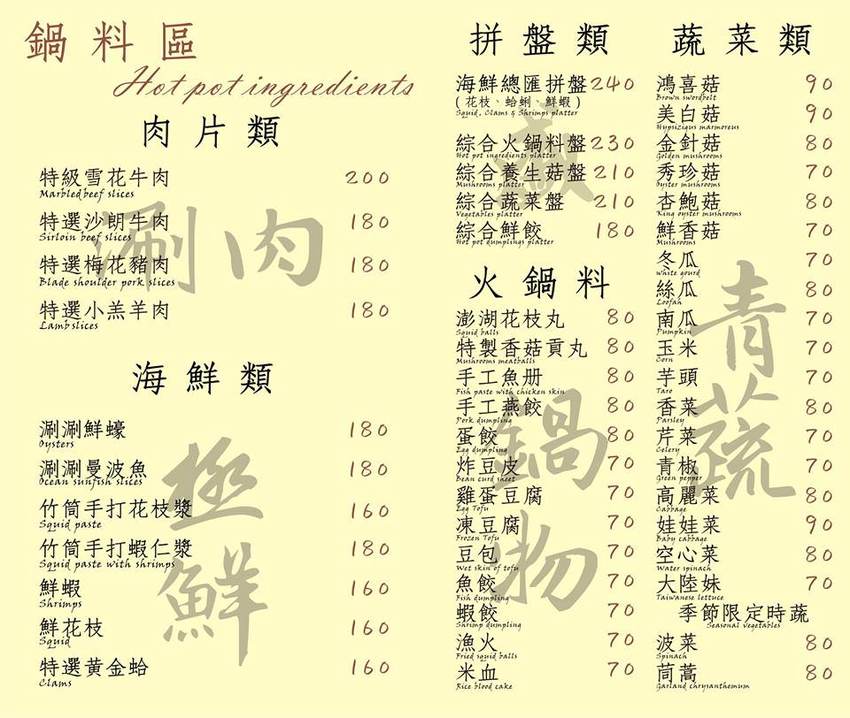 鍋料區
Hot pot ingredients
肉片類
特級雪花牛肉 200
Marbled beef slices
特選沙朗牛肉 180
Sirloin beef slices
特選梅花豬肉 180
Blade shoulder pork slices
特選小羔羊肉 180
Lamb slices
涮肉
海鮮類
涮涮鮮蠔 180
Oysters
涮涮曼波魚 180
Ocean sunfish slices
竹筒手打花枝漿 160
Squid paste
竹筒手打蝦仁漿 180
Squid paste with shrimps
鮮蝦 160
Shrimps
鮮花枝 160
Squid
特選黃金蛤 160
Clams
極鮮
拼盤類
海鮮總匯拼盤 240
(花枝、蛤蜊、鮮蝦)
Squid, Clams & Shrimps platter
綜合火鍋料盤 230
Hot pot ingredients platter
綜合養生菇盤 210
Mushrooms platter
綜合蔬菜盤 210
Vegetables platter
綜合鮮餃 180
Hot pot dumplings platter
火鍋料
澎湖花枝丸 80
Squid balls
特製香菇貢丸 80
Mushrooms meatballs
手工魚册 80
Fish paste with chicken skin
手工燕餃 80
Pork dumpling
蛋餃 80
Egg dumpling
炸豆皮 70
Bean curd sheet
雞蛋豆腐 70
Egg Tofu
凍豆腐 70
Frozen Tofu
豆包 70
Wet skin of tofu
魚餃 70
Fish dumpling
蝦餃 70
Shrimp dumpling
漁火 70
Fried squid balls
米血 70
Rice blood cake
鍋物
蔬菜類
鴻喜菇 90
Brown swordbelt
美白菇 90
Hypsizigus marmoreus
金針菇 80
Golden mushrooms
秀珍菇 70
Oyster mushrooms
杏鮑菇 80
King oyster mushrooms
鮮香菇 70
Mushrooms
冬瓜 70
White gourd
絲瓜 80
Loofah
南瓜 70
Pumpkin
玉米 70
Corn
芋頭 70
Taro
香菜 80
Parsley
芹菜 70
Celery
青椒 70
Green pepper
高麗菜 80
Cabbage
娃娃菜 90
Baby cabbage
空心菜 80
Water spinach
大陸妹 70
Taiwanese lettuce
季節限定時蔬
Seasonal vegetables
菠菜 80
Spinach
茼蒿 80
Garland chrysanthemum
青蔬